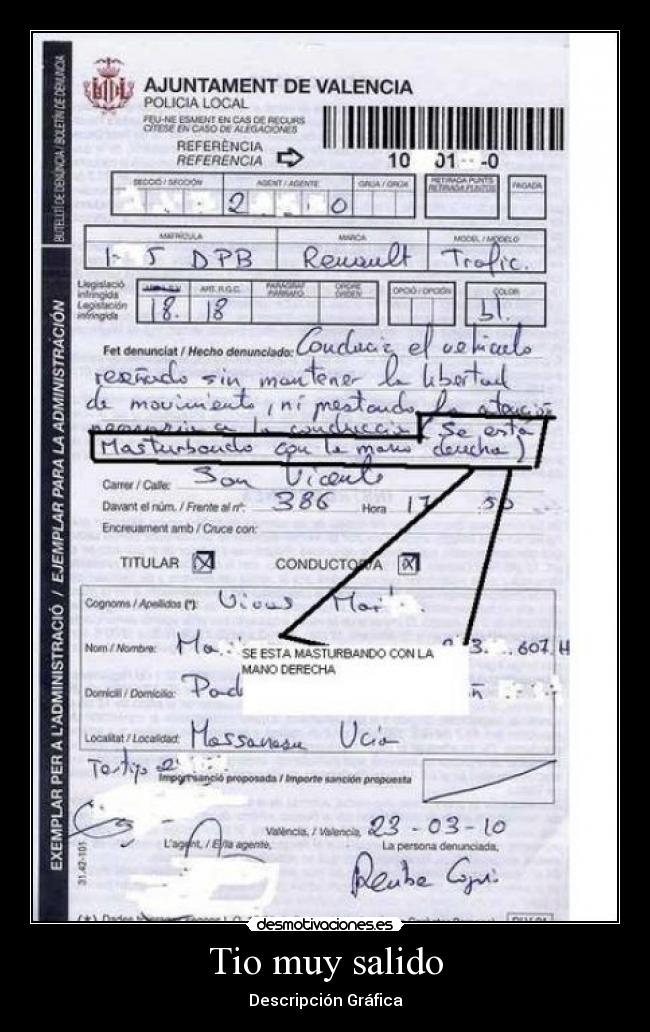 AJUNTAMENT DE VALENCIA
POLICIA LOCAL
FEU-NE ESMENT EN CAS DE RECURS
CÍTESE EN CASO DE ALEGACIONES
REFERÈNCIA
REFERENCIA
10 01 -0
BUTLLETÍ DE DENÚNCIA / BOLETÍN DE DENUNCIA
EXEMPLAR PER A L'ADMINISTRACIÓ / EJEMPLAR PARA LA ADMINISTRACIÓN
SECCIÓ / SECCIÓN AGENT / AGENTE GRUA / GRÚA RETIRADA PUNTS RETIRADA PUNTOS PAGADA
2 0
MATRÍCULA MARCA MODEL / MODELO
1 5 DPB Renault Trafic.
Llegislació infringida
Legislación infringida
ART. R.G.C. PARÀGRAF PÁRRAFO ORDRE ORDEN OPCIÓ / OPCIÓN COLOR
18. 18 bl.
Fet denunciat / Hecho denunciado: Conducir el vehiculo
reseñado sin mantener la libertad
de movimiento, ni prestando la atención
necesaria a la conduccion (Se está
Masturbando con la mano derecha)
Carrer / Calle: San Vicente
Davant el núm. / Frente al nº: 386 Hora 17 50
Encreuament amb / Cruce con:
TITULAR X CONDUCTOR/A X
Cognoms / Apellidos (*):
Nom / Nombre: 3. 607 H
SE ESTA MASTURBANDO CON LA
MANO DERECHA
Domicili / Domicilio:
Localitat / Localidad: Massanassa
Testigo 2
Import sanció proposada / Importe sanción propuesta
València, / Valencia, 23-03-10
L'agent, / El/la agente, La persona denunciada,
31.42-101
desmotivaciones.es
Tio muy salido
Descripción Gráfica